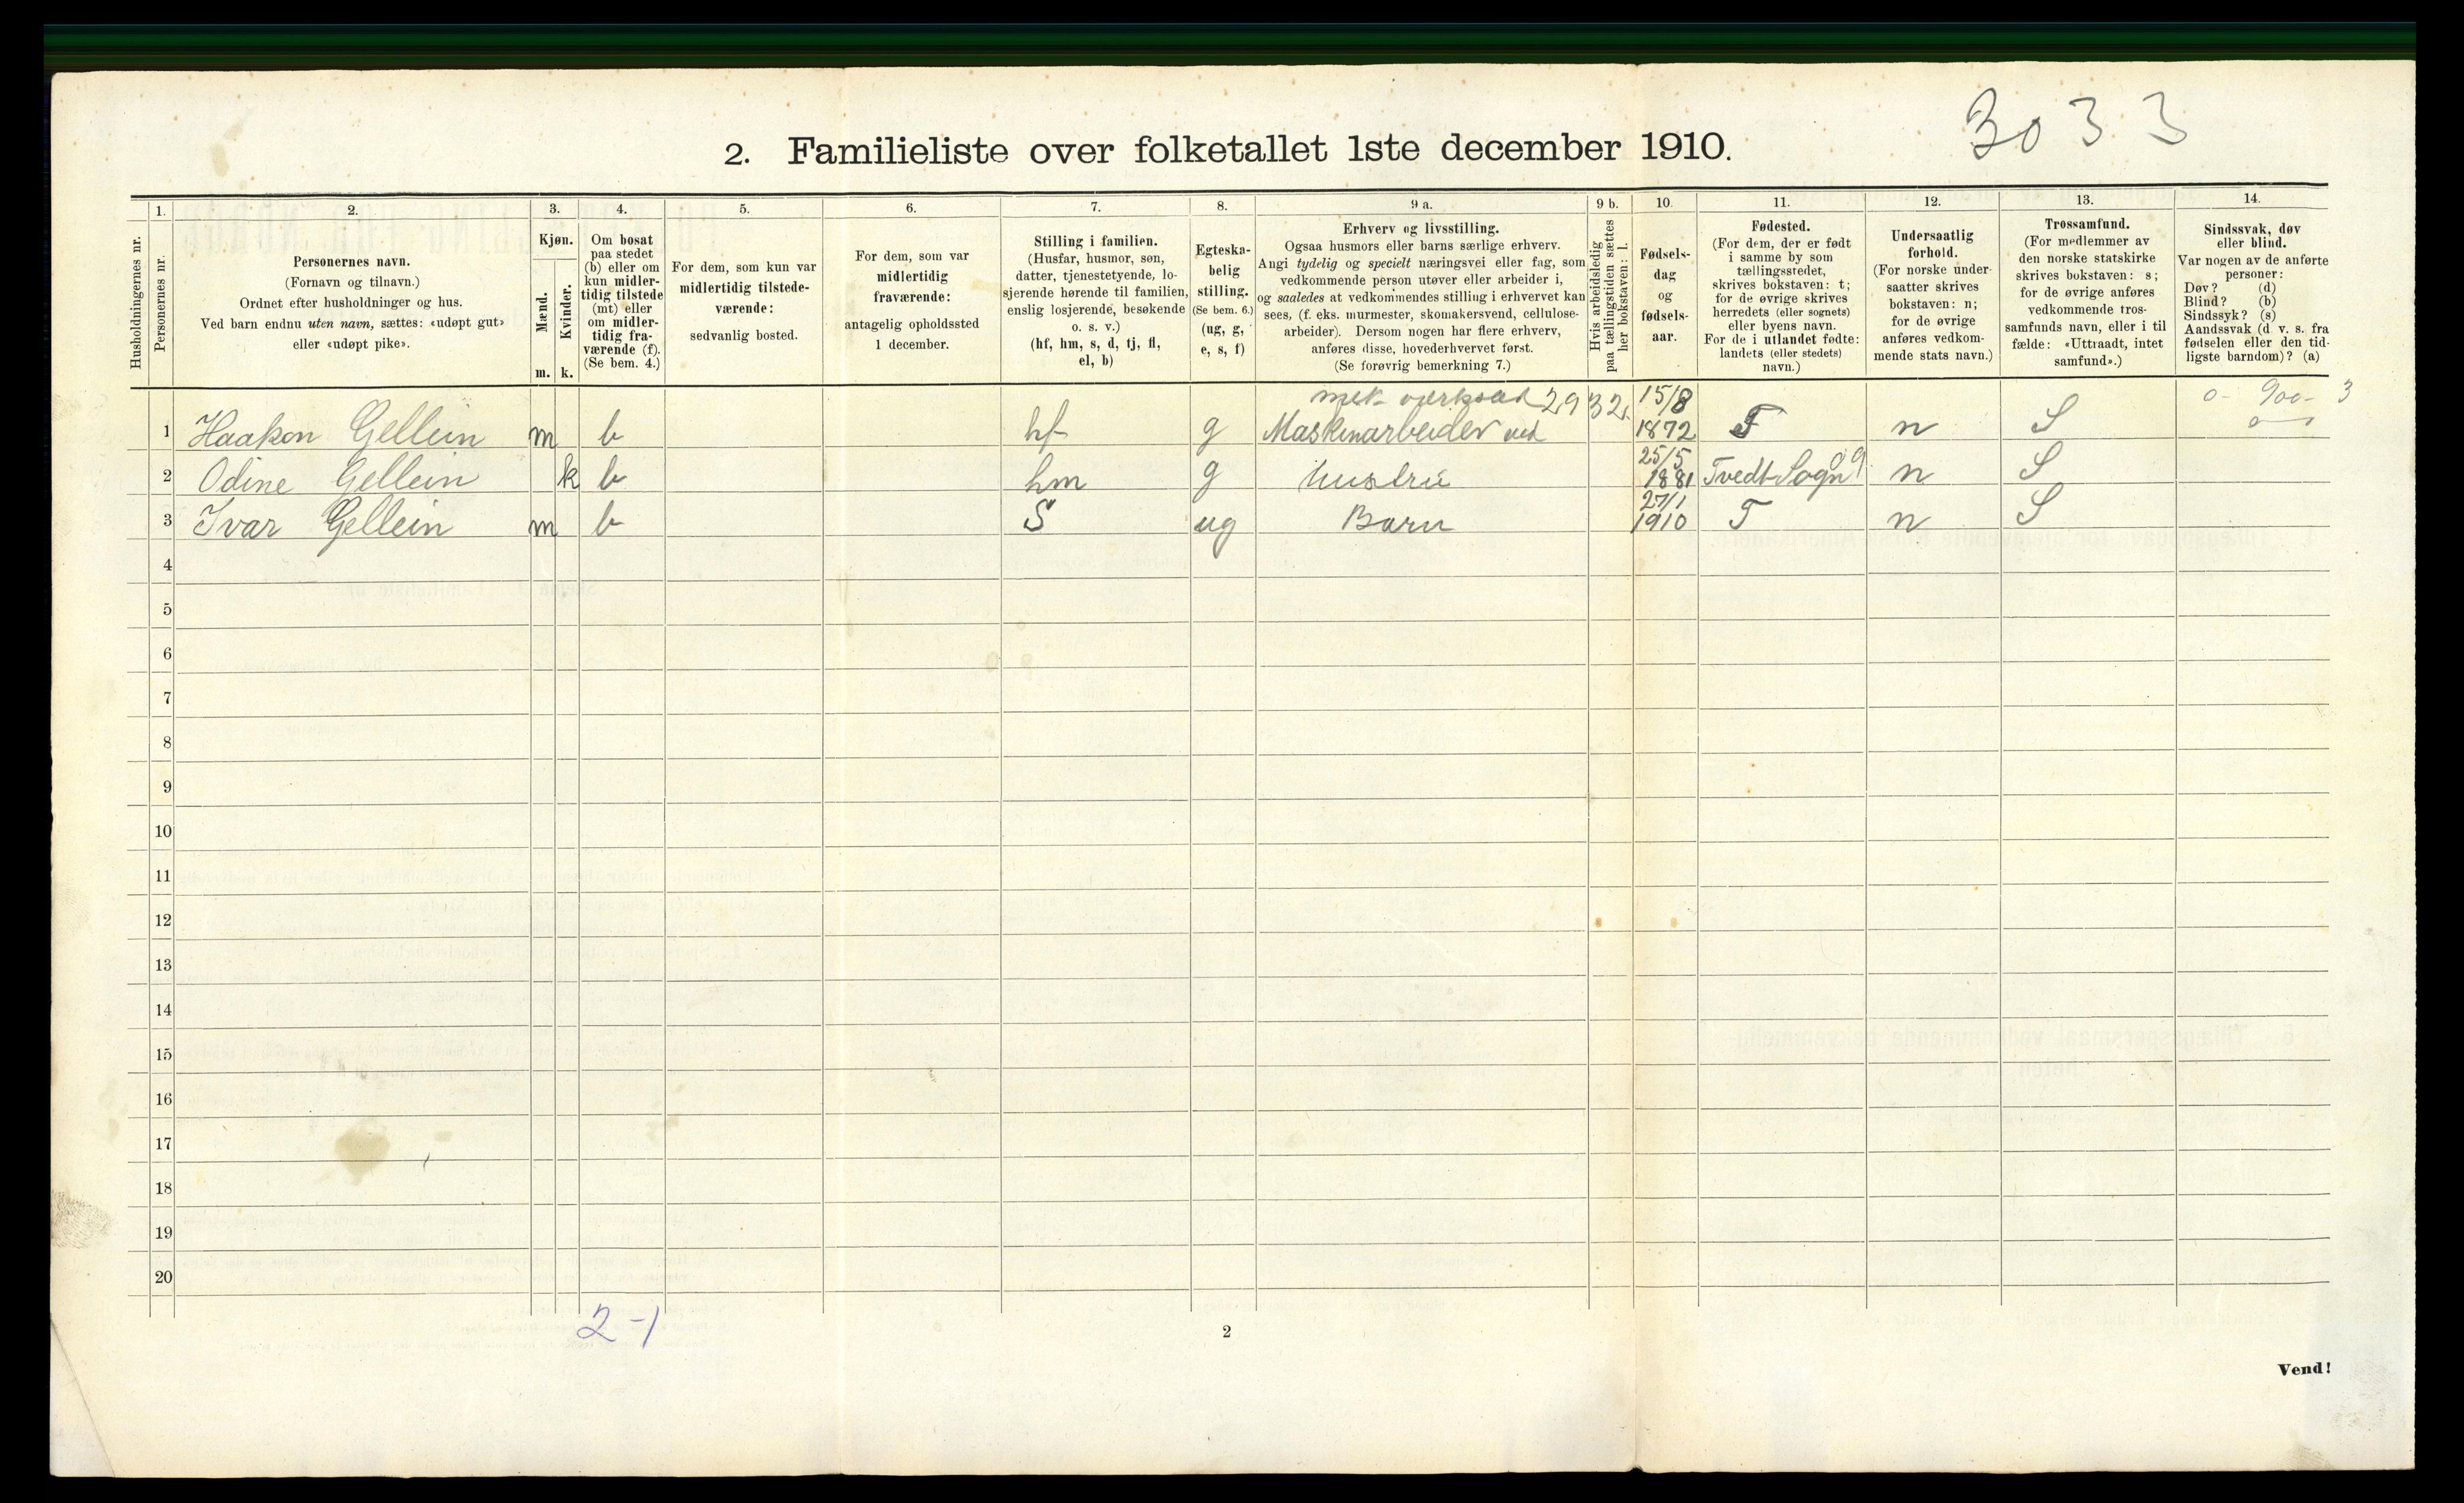 3033
2. Familieliste over folketallet 1ste december 1910.
Husholdningernes nr.
1.
Personernes nr.
2.
Personernes navn.
(Fornavn og tilnavn.)
Ordnet efter husholdninger og hus.
Ved barn endnu uten navn, sættes: «udøpt gut»
eller «udøpt pike».
3.
Kjøn.
Mænd.
Kvinder.
m. k.
4.
Om bosat
paa stedet
(b) eller om
kun midler-
tidig tilstede
(mt) eller
om midler-
tidig fra-
værende (f).
(Se bem. 4.)
5.
For dem, som kun var
midlertidig tilstede-
værende:
sedvanlig bosted.
6.
For dem, som var
midlertidig
fraværende:
antagelig opholdssted
1 december.
7.
Stilling i familien.
(Husfar, husmor, søn,
datter, tjenestetyende, lo-
sjerende hørende til familien,
enslig losjerende, besøkende
o. s. v.)
(hf, hm, s, d, tj, fl,
el, b)
8.
Egteska-
belig
stilling.
(Se bem. 6.)
(ug, g,
e, s, f)
9 a.
Erhverv og livsstilling.
Ogsaa husmors eller barns særlige erhverv.
Angi tydelig og specielt næringsvei eller fag, som
vedkommende person utøver eller arbeider i,
og saaledes at vedkommendes stilling i erhvervet kan
sees, (f. eks. murmester, skomakersvend, cellulose-
arbeider). Dersom nogen har flere erhverv,
anføres disse, hovederhvervet først.
(Se forøvrig bemerkning 7.)
9 b.
Hvis arbeidsledig
paa tællingstiden sættes
her bokstaven: l.
10.
Fødsels-
dag
og
fødsels-
aar.
11.
Fødested.
(For dem, der er født
i samme by som
tællingsstedet,
skrives bokstaven: t;
for de øvrige skrives
herredets (eller sognets)
eller byens navn.
For de i utlandet fødte:
landets (eller stedets)
navn.)
12.
Undersaatlig
forhold.
(For norske under-
saatter skrives
bokstaven: n;
for de øvrige
anføres vedkom-
mende stats navn.)
13.
Trossamfund.
(For medlemmer av
den norske statskirke
skrives bokstaven: s;
for de øvrige anføres
vedkommende tros-
samfunds navn, eller i til
fælde: «Uttraadt, intet
samfund».)
14.
Sindssvak, døv
eller blind.
Var nogen av de anførte
personer:
Døv? (d)
Blind? (b)
Sindssyk? (s)
Aandssvak (d. v. s. fra
fødselen eller den tid-
ligste barndom)? (a)
mek. verksted 2932. 15/8 0- 900- 3
1 Haakon Gellein m b hf g Maskinarbeider ved 1872 T n S 0
25/5 09
2 Odine Gellein k b hm g Hustru 1881 Tvedt Sogn n S
27/1
3 Ivar Gellein m b S ug Barn 1910 T n S
4
5
6
7
8
9
10
11
12
13
14
15
16
17
18
19
20
2-1
2
Vend!